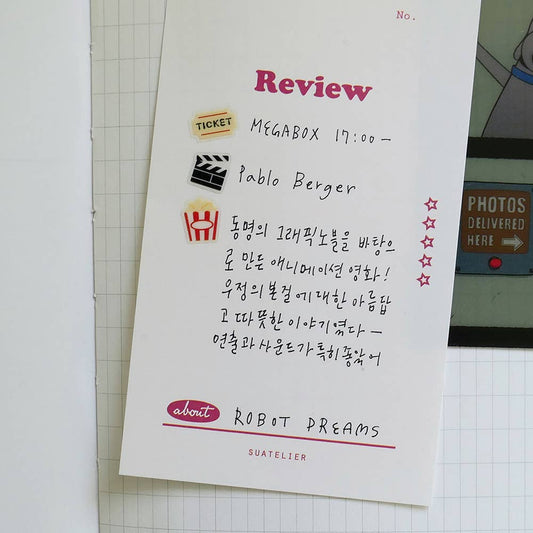 No.
Review
TICKET
MEGABOX 17:00-
Pablo Berger
동명의 그래픽노블을 바탕으
로 만든 애니메이션 영화!
우정의 본질에 대한 아름답
고 따뜻한 이야기였다 -
연출과 사운드가 특히 좋았어
PHOTOS
DELIVERED
HERE
about ROBOT DREAMS
SUATELIER